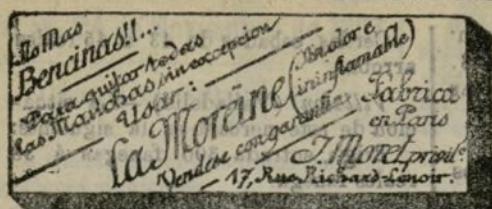 No Mas
Bencinas!!...
Para quitar todas
las Manchas sin excepcion
Usar:
La Moreine (Inolore e
ininflamable)
Vendese con garantia
Fabrica
en Paris
J. Moret, privilº.
17, Rue Richard-Lenoir.